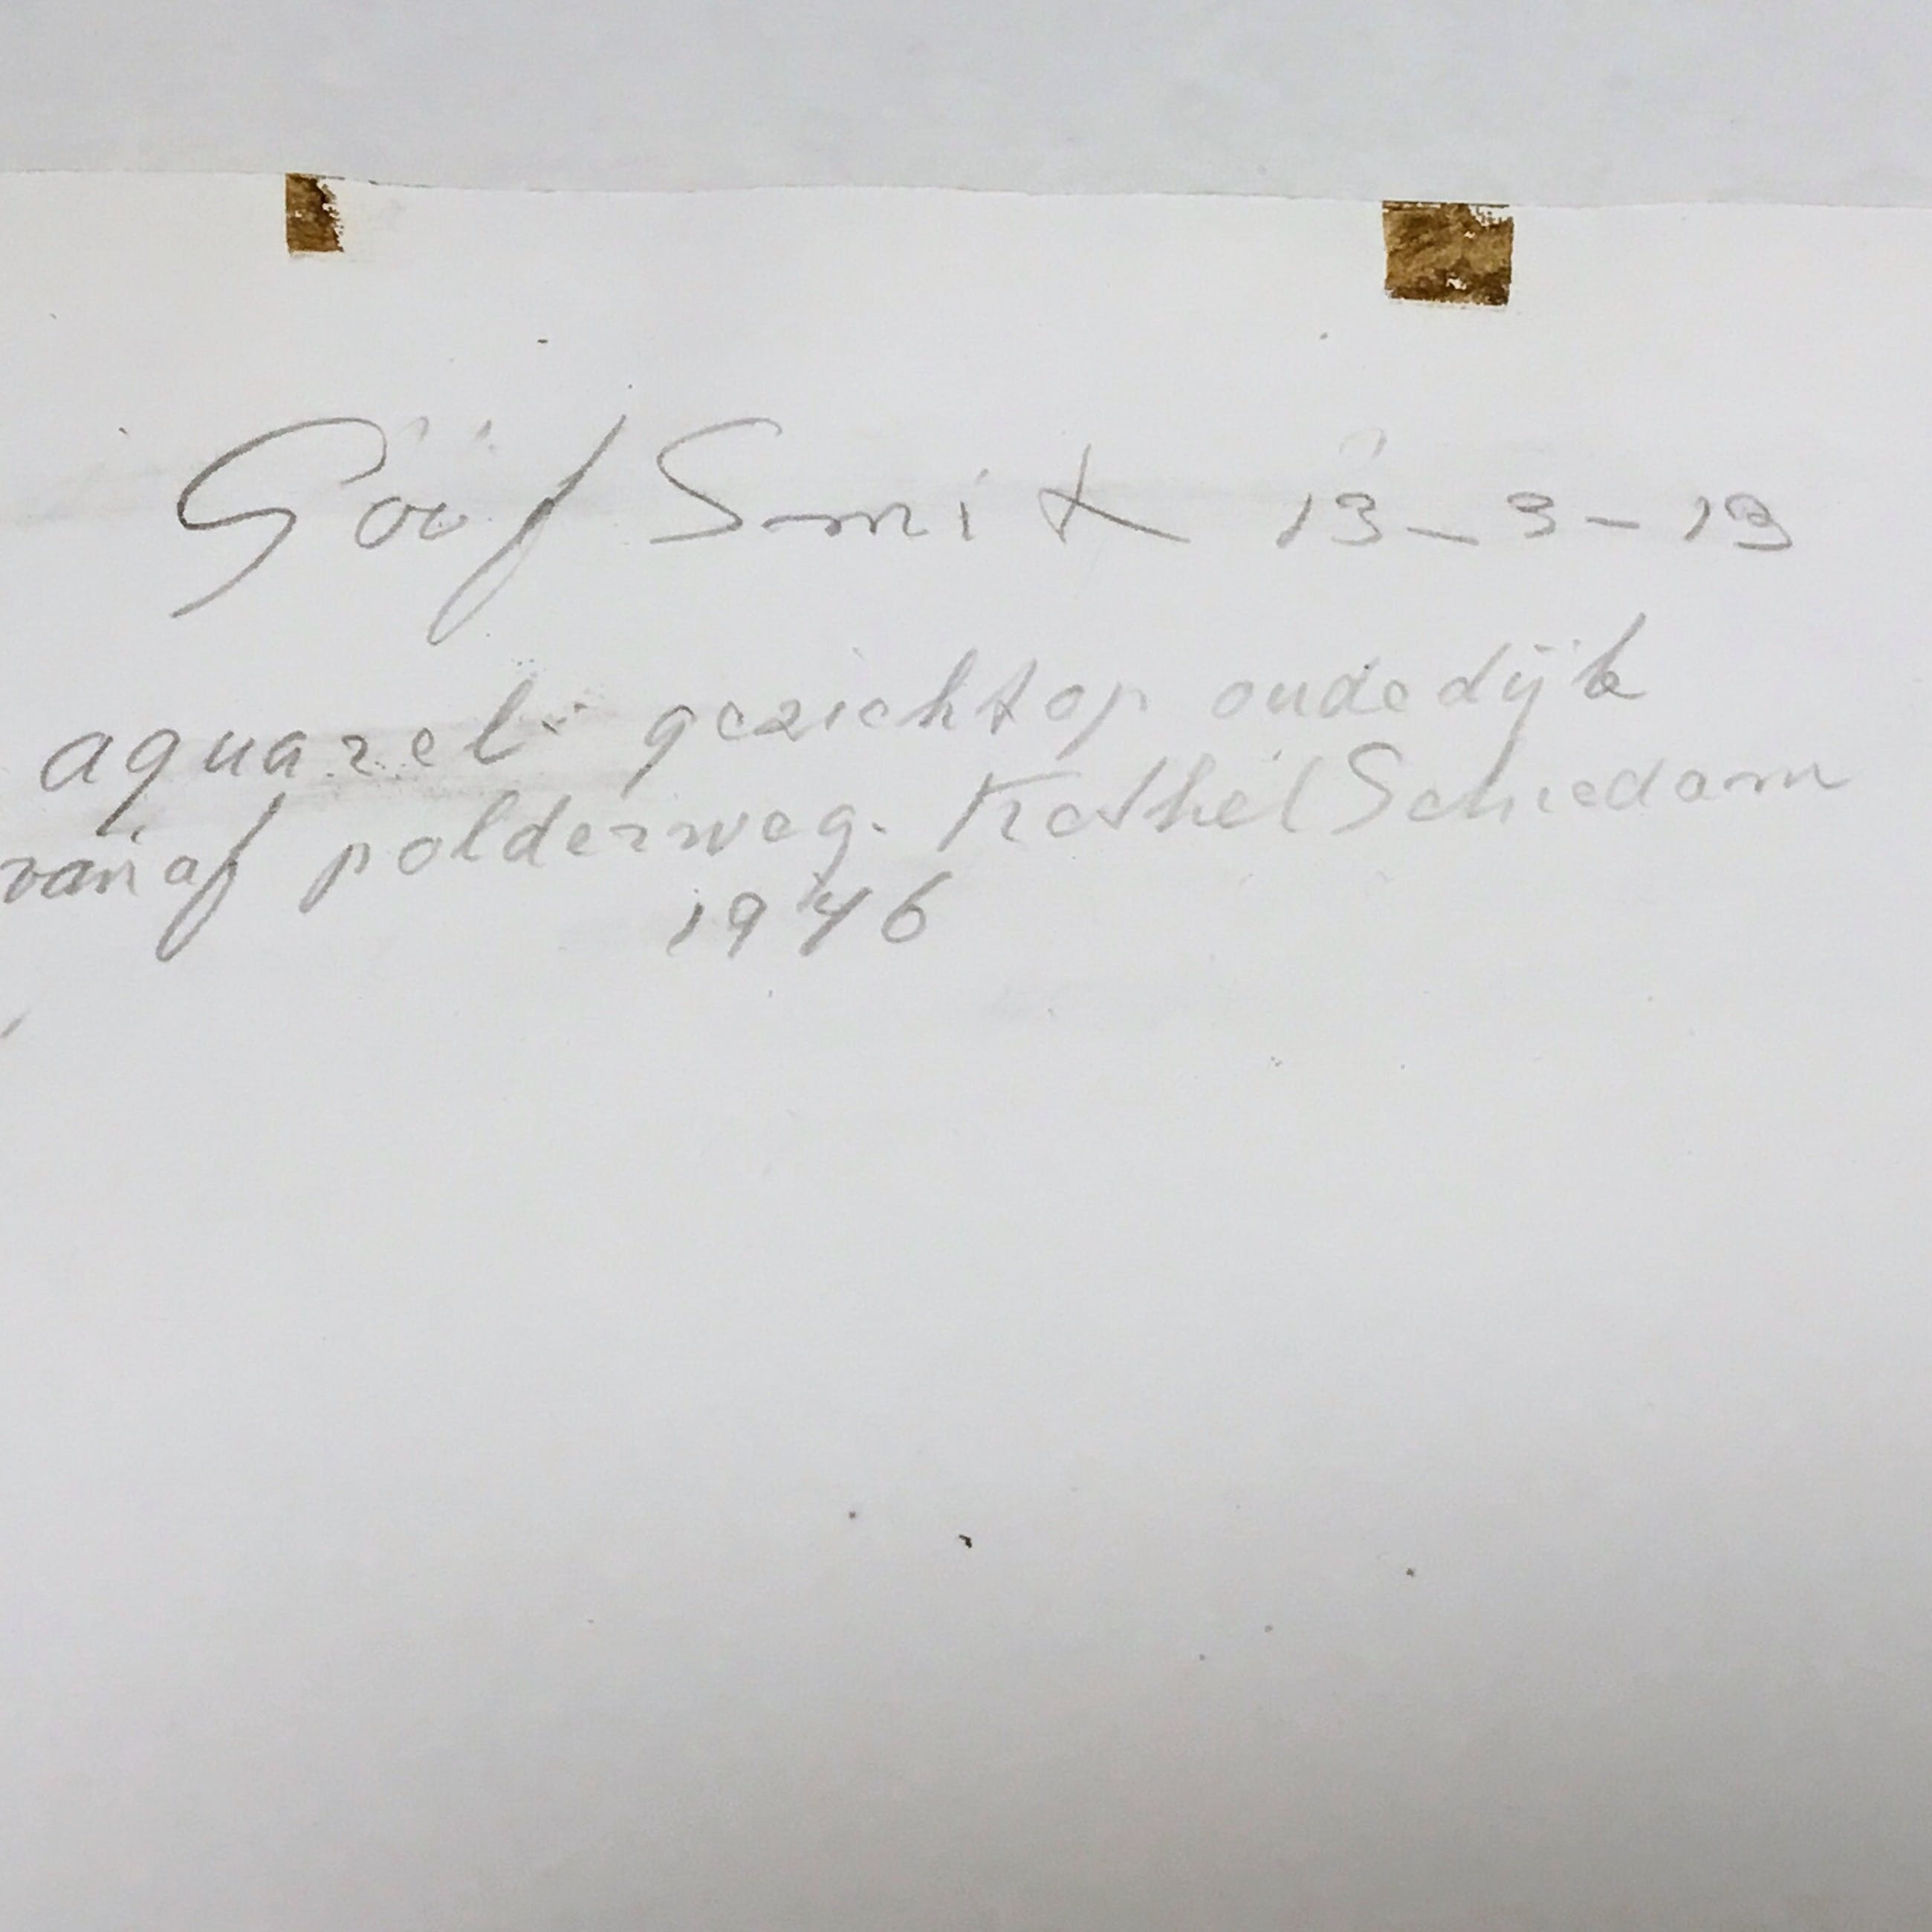 Goof Smit 13-3-13
aquarel gezicht op oudedijk
vanaf polderweg. Kethel Schiedam
1946